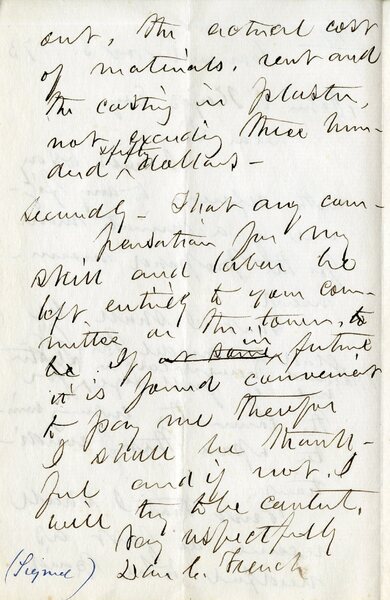 out, the actual cost
of materials, rent and
the casting in plaster,
not exceeding three hun-
dred & fifty dollars -
Secondly - That any com-
pensation for my
skill and labor be
left entirely to your com-
mittee or the town, to
be. If at some in future
it is found convenient
to pay me therefor
I shall be thank-
ful and if not, I
will try to be content.
Very respectfully
(Signed) Dan C. French